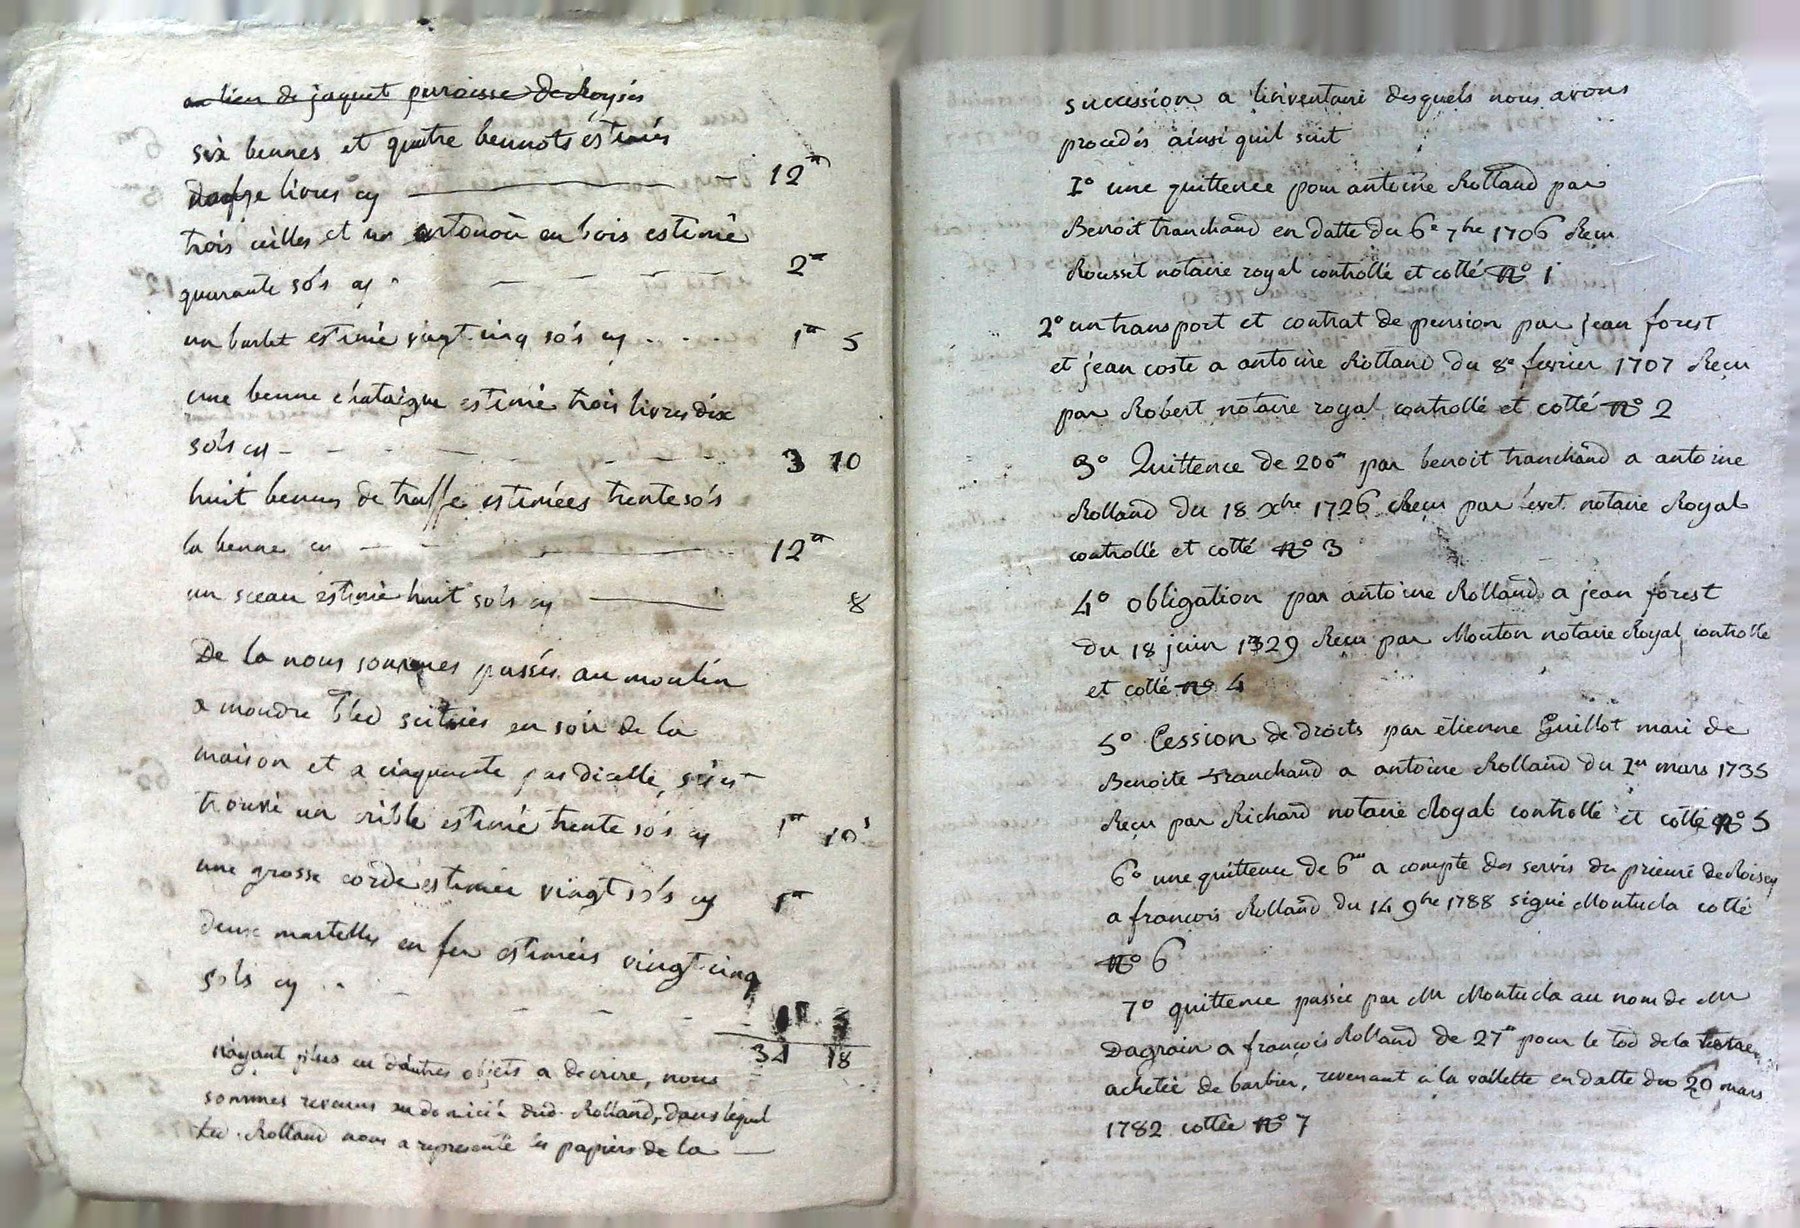 au lieu de jaquet paroisse de Roysis
six bennes et quatre bennots éstimés
douze livres cy 12tt
trois ceilles et un antonoir en bois estimé
quarante sols cy 2tt
un barlet estimé vingt cinq sols cy 1tt 5
une benne chataigne estimé trois livres dix
sols cy 3 10
huit bennes de truffe estimées trente sols
la benne cy 12tt
un sceau estimé huit sols cy 8
De la nous sommes passés au moulin
a moudre bled scitués en soir de la
maison et a cinquante pas dicelle, sest
trouvé un crible estimé trente sols cy 1tt 10s
une grosse corde estimée vingt sols cy 1tt
deux martelles en fer estimeés vingt cinq
sols cy 1tt 5
34 18
n'ayant plus eu d'autres objets a decrire, nous
sommes revenus au domicile dud. Rolland, dans lequel
led. Rolland nous a representé les papiers de la
succession a l'inventaire desquels nous avons
procedés ainsi quil suit
1° une quittence pour antoine Rolland par
Benoit tranchand en datte du 6e 7bre 1706 Reçu
Rousset notaire royal controllé et cotté N° 1
2° un transport et contrat de pension par jean forest
et jean coste a antoine Rolland du 8e fevrier 1707 Reçu
par Robert notaire royal controllé et cotté N° 2
3° Quittence de 200tt par benoit tranchand a antoine
Rolland du 18 Xbre 1726 Reçu par levet notaire Royal
controllé et cotté N° 3
4° obligation par antoine Rolland a jean forest
du 18 juin 1729 Reçu par Mouton notaire Royal controllé
et cotté N° 4
5° Cession de droits par etienne Guillot mari de
Benoite tranchand a antoine Rolland du 1er mars 1735
Reçu par Richard notaire Royal controllé et cotté N° 5
6° une quittence de 6tt a compte des servis du prieuré de Roisey
a françois Rolland du 14 9bre 1788 signé Montucla cotté
N° 6
7° quittence passée par Mr Montucla au nom de Mr
Dagrain a françois Rolland de 27tt pour le lod de la
achetée de barbier, revenant a la vallette en datte du 20 mars
1782 cottée N° 7